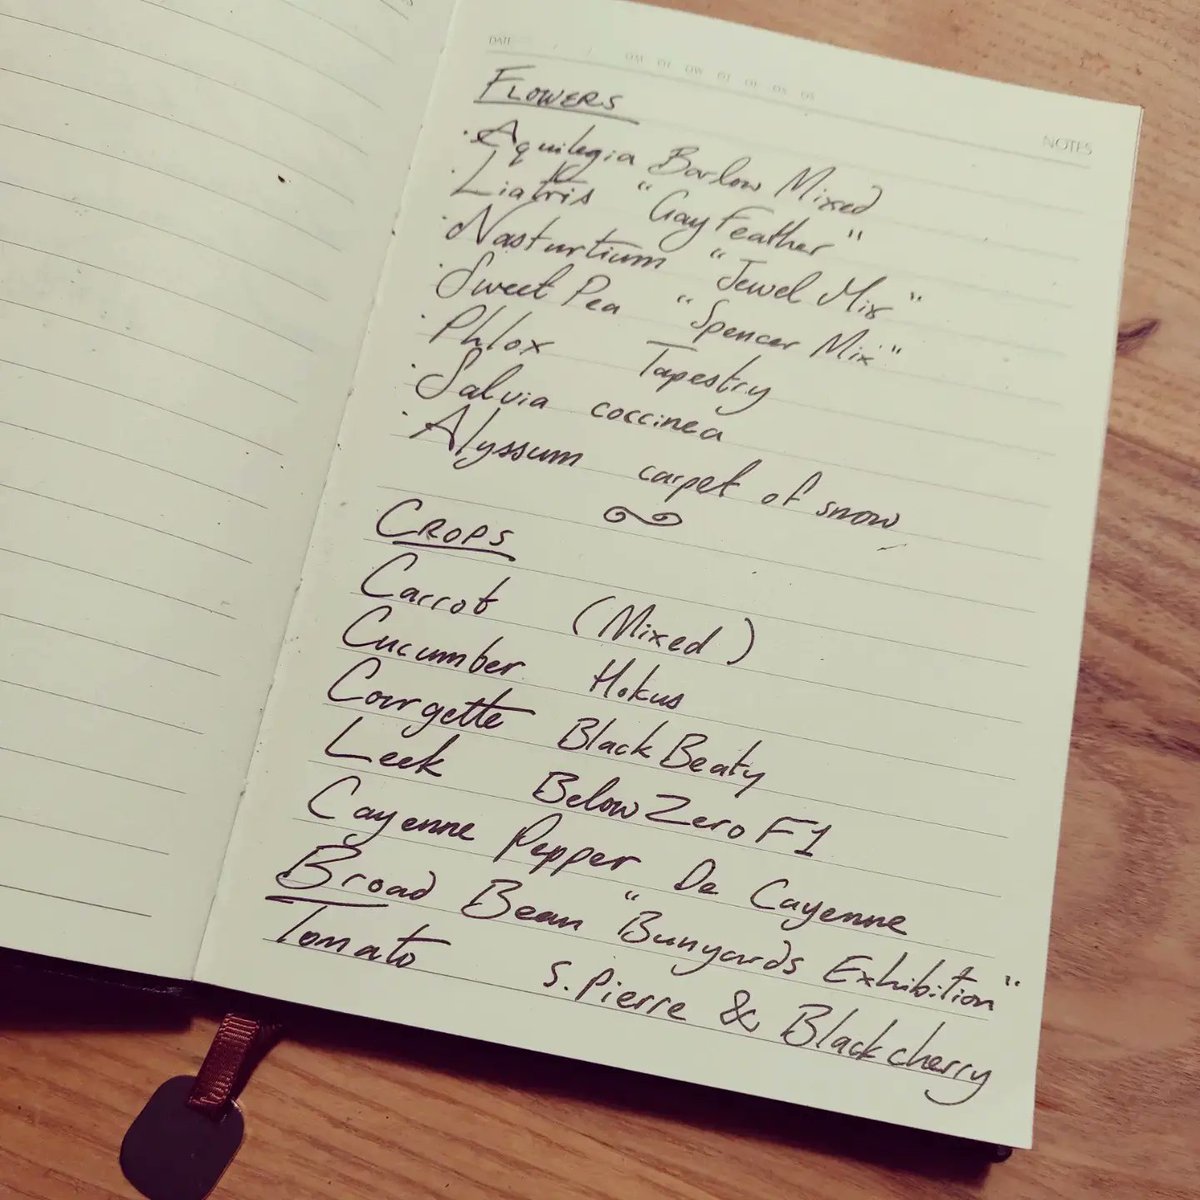 DATE / /
NOTES
FLOWERS
· Aquilegia Barlow Mixed
· Liatris "Gay Feather"
· Nasturtium "Jewel Mix"
· Sweet Pea "Spencer Mix"
· Phlox Tapestry
· Salvia coccinea
· Alyssum carpet of snow
CROPS
Carrot (Mixed)
Cucumber Hokus
Courgette Black Beaty
Leek Below Zero F1
Cayenne Pepper De Cayenne
Broad Bean "Bunyards Exhibition"
Tomato S. Pierre & Blackcherry